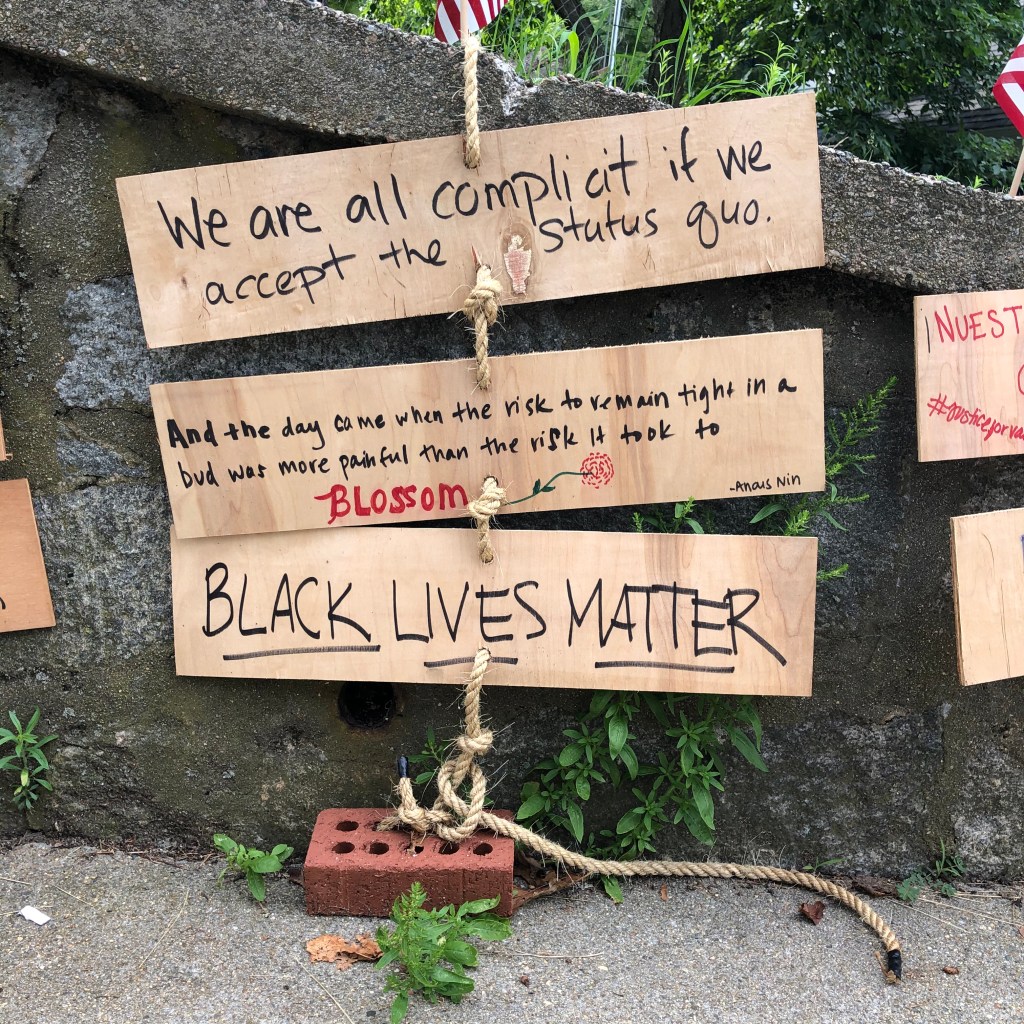 We are all complicit if we
accept the status quo.
And the day came when the risk to remain tight in a
bud was more painful than the risk it took to
BLOSSOM
-Anaïs Nin
BLACK LIVES MATTER
NUEST
#justiceforva